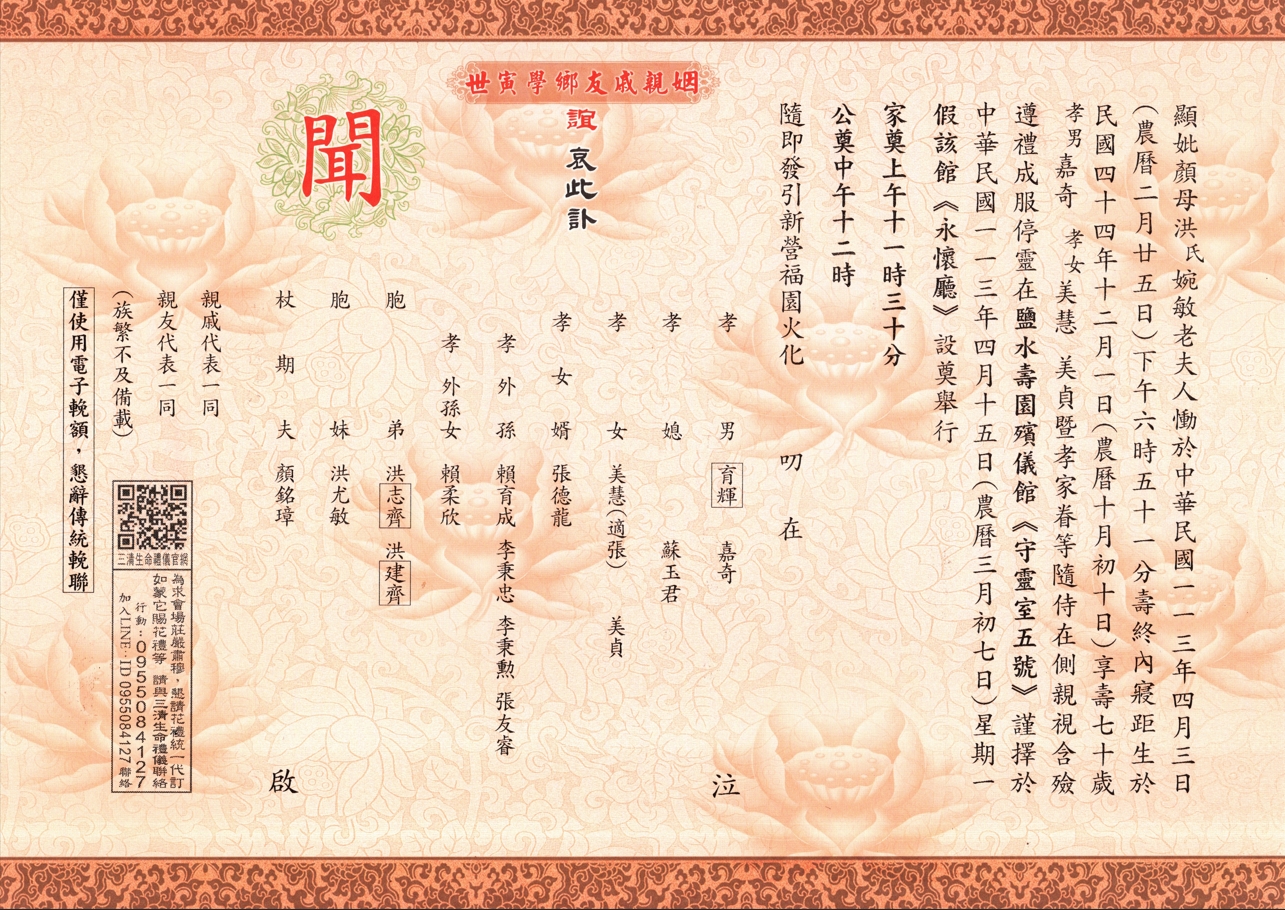 顯妣顏母洪氏婉敏老夫人慟於中華民國一一三年四月三日
(農曆二月廿五日)下午六時五十一分壽終內寢距生於
民國四十四年十二月一日(農曆十月初十日)享壽七十歲
孝男嘉奇 孝女美慧 美貞暨孝家眷等隨侍在側親視含殮
遵禮成服停靈在鹽水壽園殯儀館《守靈室五號》謹擇於
中華民國一一三年四月十五日(農曆三月初七日)星期一
假該館《永懷廳》設奠舉行
家奠上午十一時三十分
公奠中午十二時
隨即發引新營福園火化 叨在
姻親戚友鄉學寅世
誼 哀此訃
聞
孝男 育輝 嘉奇 泣
孝媳 蘇玉君
孝女 美慧(適張) 美貞
孝女婿 張德龍
孝外孫 賴育成 李秉忠 李秉勳 張友睿
孝外孫女 賴柔欣
胞弟 洪志齊 洪建齊
胞妹 洪尤敏
杖期夫 顏銘璋 啟
親戚代表一同
親友代表一同
(族繁不及備載)
僅使用電子輓額，懇辭傳統輓聯
三清生命禮儀官網
為求會場莊嚴肅穆，懇請花禮統一代訂
如蒙它賜花禮等 請與三清生命禮儀聯絡
行動：0955084127
加入LINE：ID 0955084127 聯絡